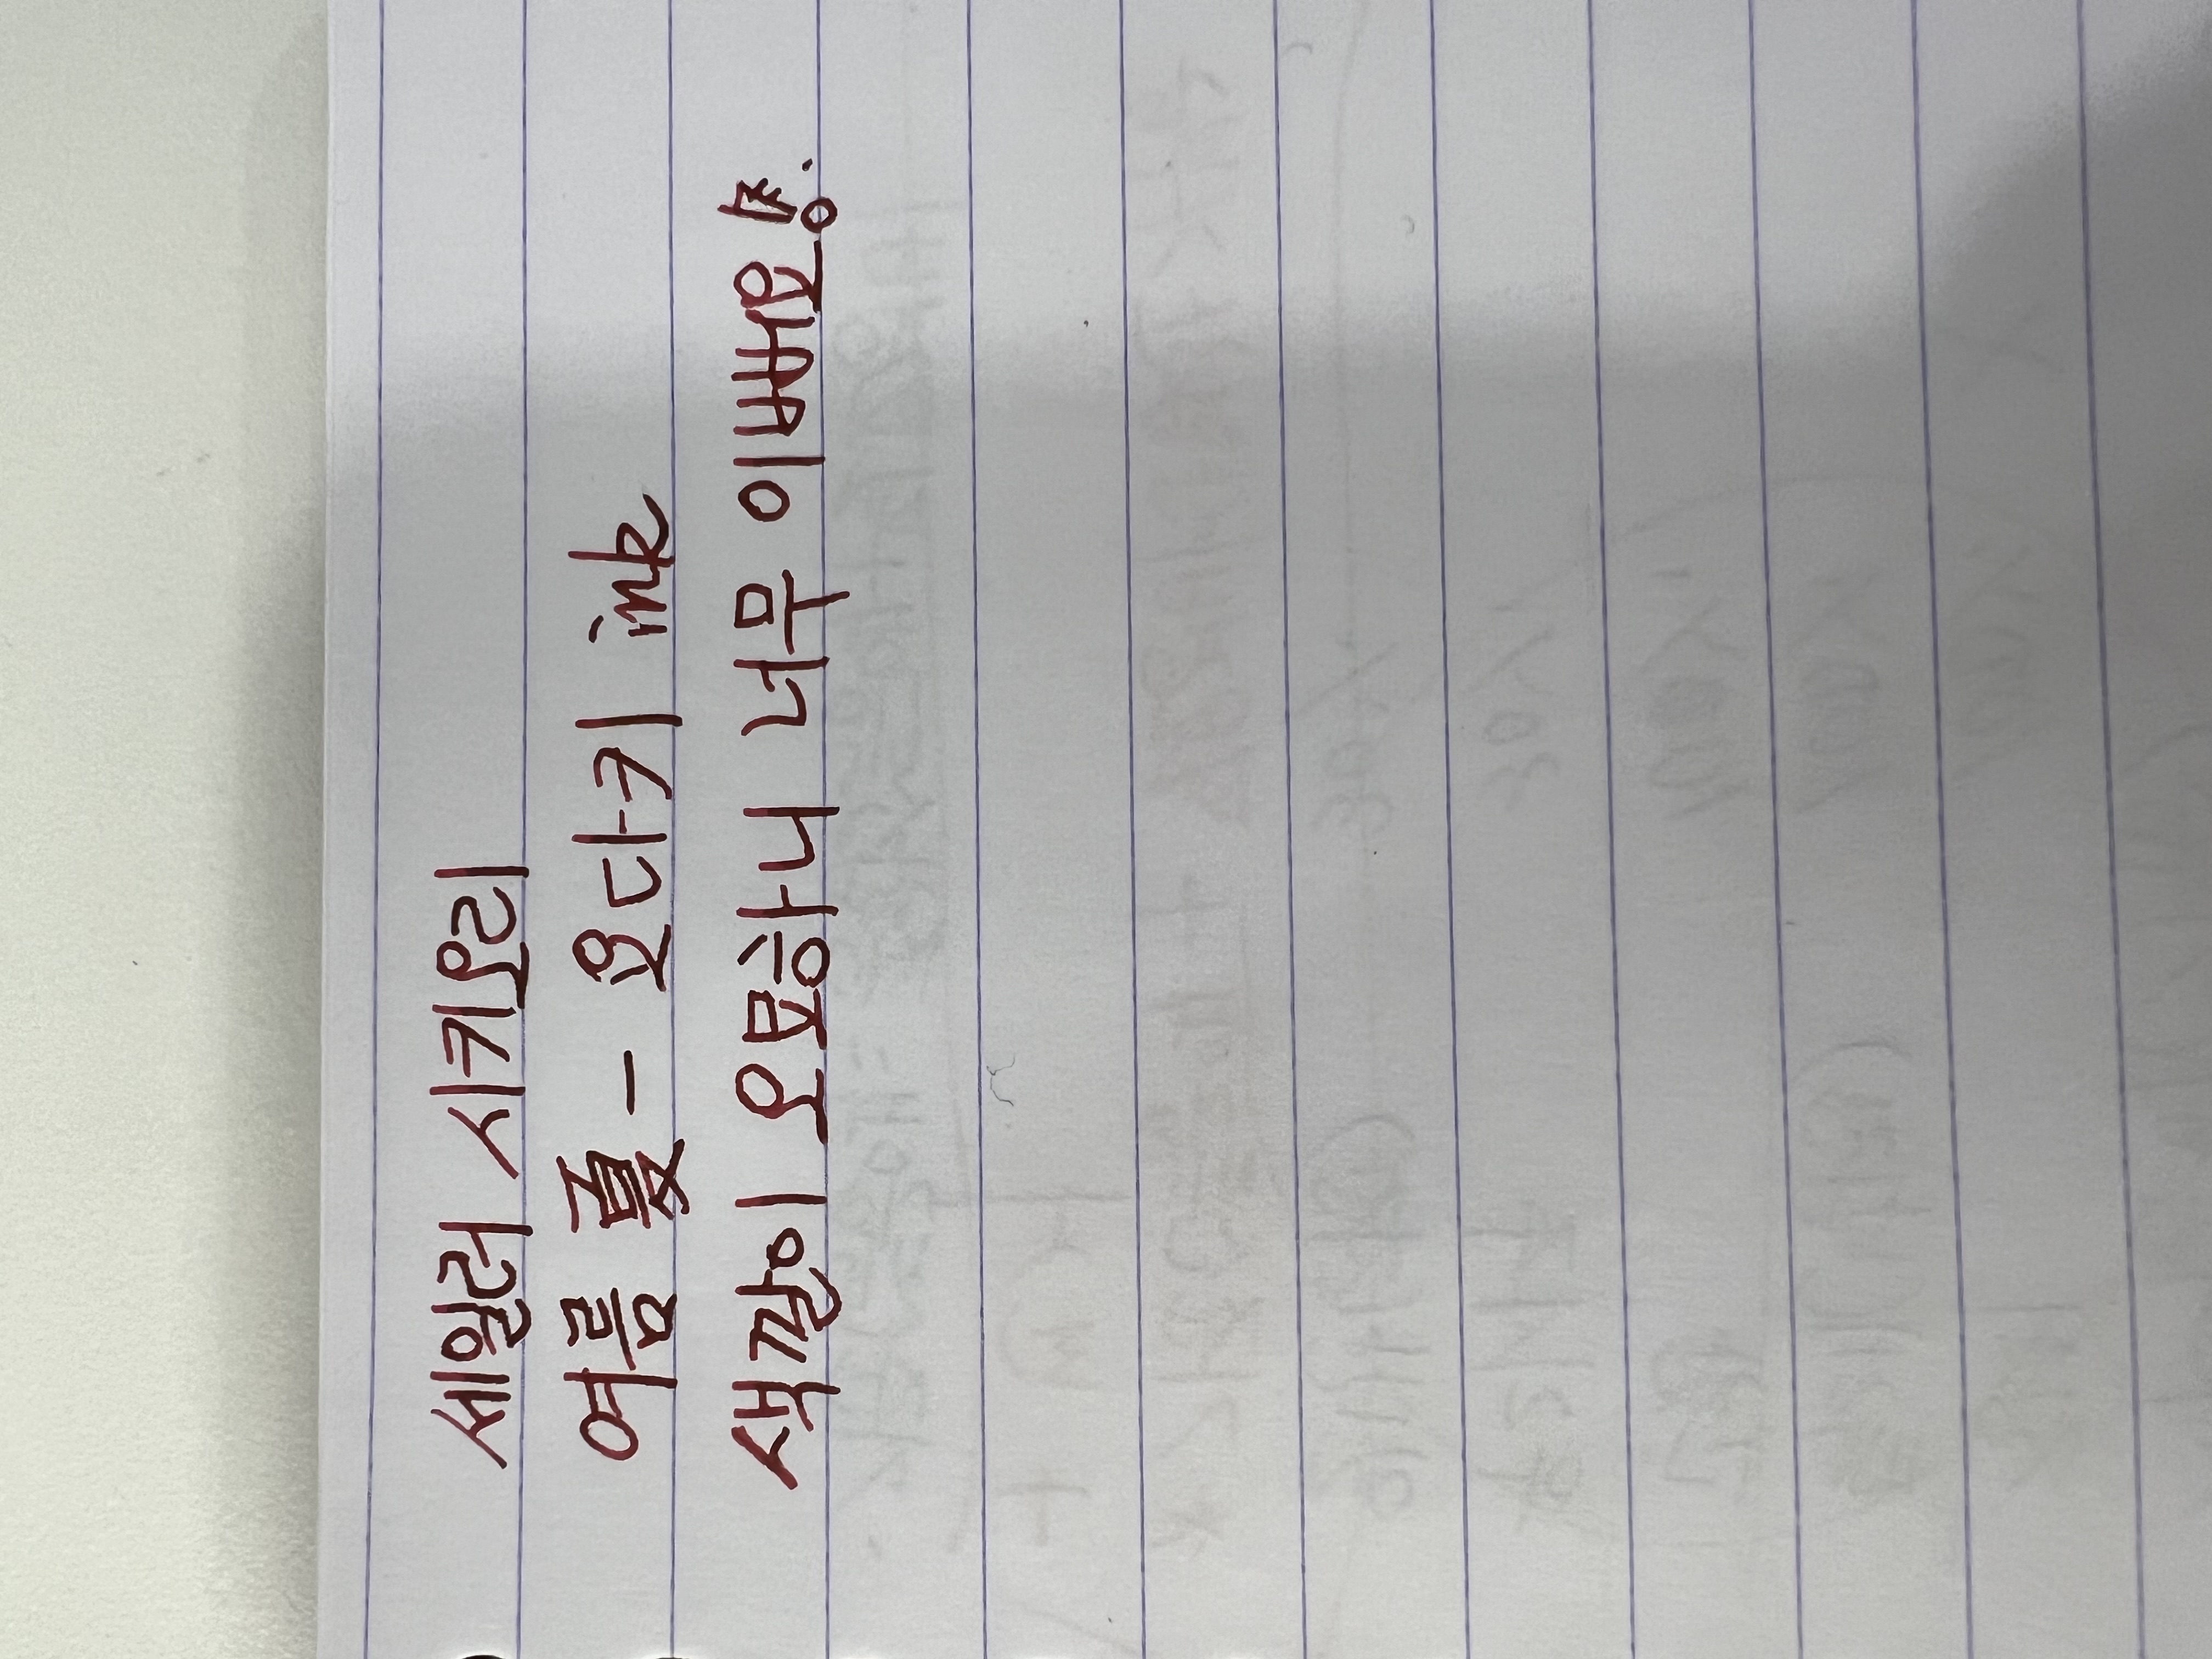 세일러 시키오리
여름 夏 - 요다키 ink
색깔이 오묘하니 너무 이뻐요